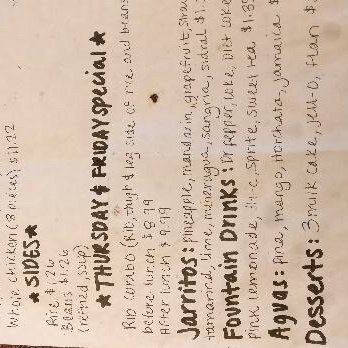 Whole chicken (8 pieces) $11.22
★ SIDES ★
Rice $1.26
Beans $1.26
(refried, soup)
★ THURSDAY & FRIDAY special ★
Rib combo (Rib, thigh & leg side of rice and beans
before lunch $8.99
After lunch $9.99
Jarritos: pineapple, mandarin, grapefruit, straw
tamarind, lime, mineragua, sangria, sidral $1.
Fountain Drinks: Dr pepper, coke, Diet coke
pink lemonade, Hi-c, Sprite, sweet tea $1.39
Aguas: pina, mango, Horchata, jamaica $
Desserts: 3 milk cake, Jell-O, flan $